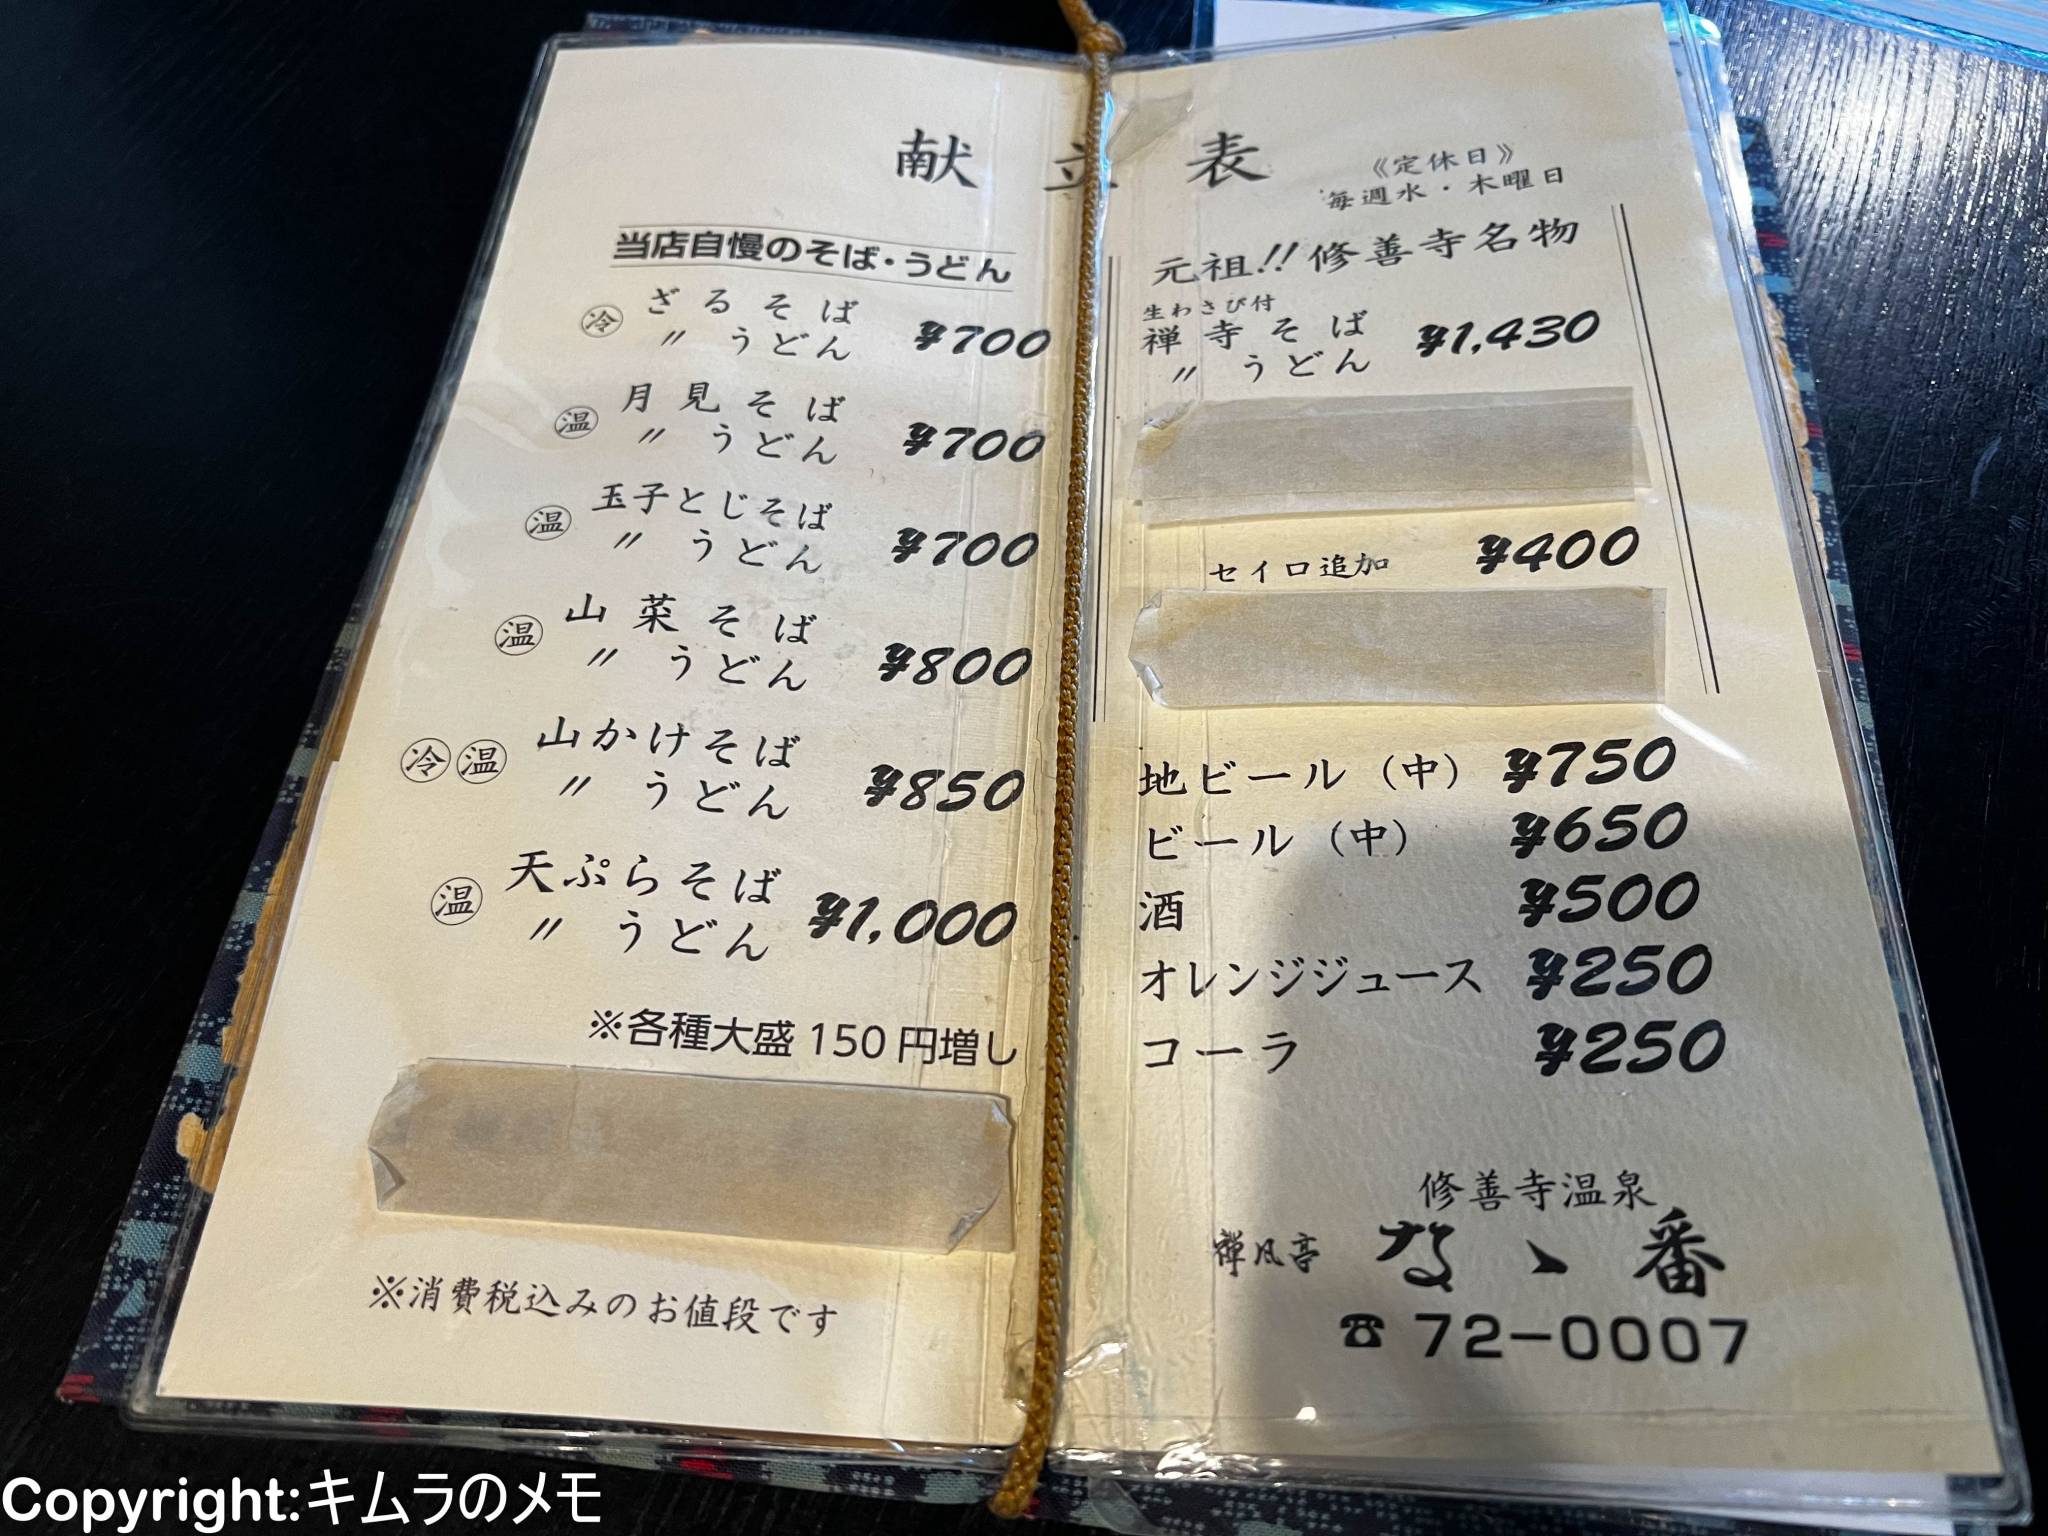 献立表
《定休日》
毎週水・木曜日
当店自慢のそば・うどん
冷 ざるそば
〃 うどん ¥700
温 月見そば
〃 うどん ¥700
温 玉子とじそば
〃 うどん ¥700
温 山菜そば
〃 うどん ¥800
冷 温 山かけそば
〃 うどん ¥850
温 天ぷらそば
〃 うどん ¥1,000
※各種大盛150円増し
※消費税込みのお値段です
元祖!!修善寺名物
生わさび付
禅寺そば ¥1,430
〃 うどん
セイロ追加 ¥400
地ビール(中) ¥750
ビール(中) ¥650
酒 ¥500
オレンジジュース ¥250
コーラ ¥250
修善寺温泉
禅風亭 なゝ番
☎72-0007
Copyright:キムラのメモ